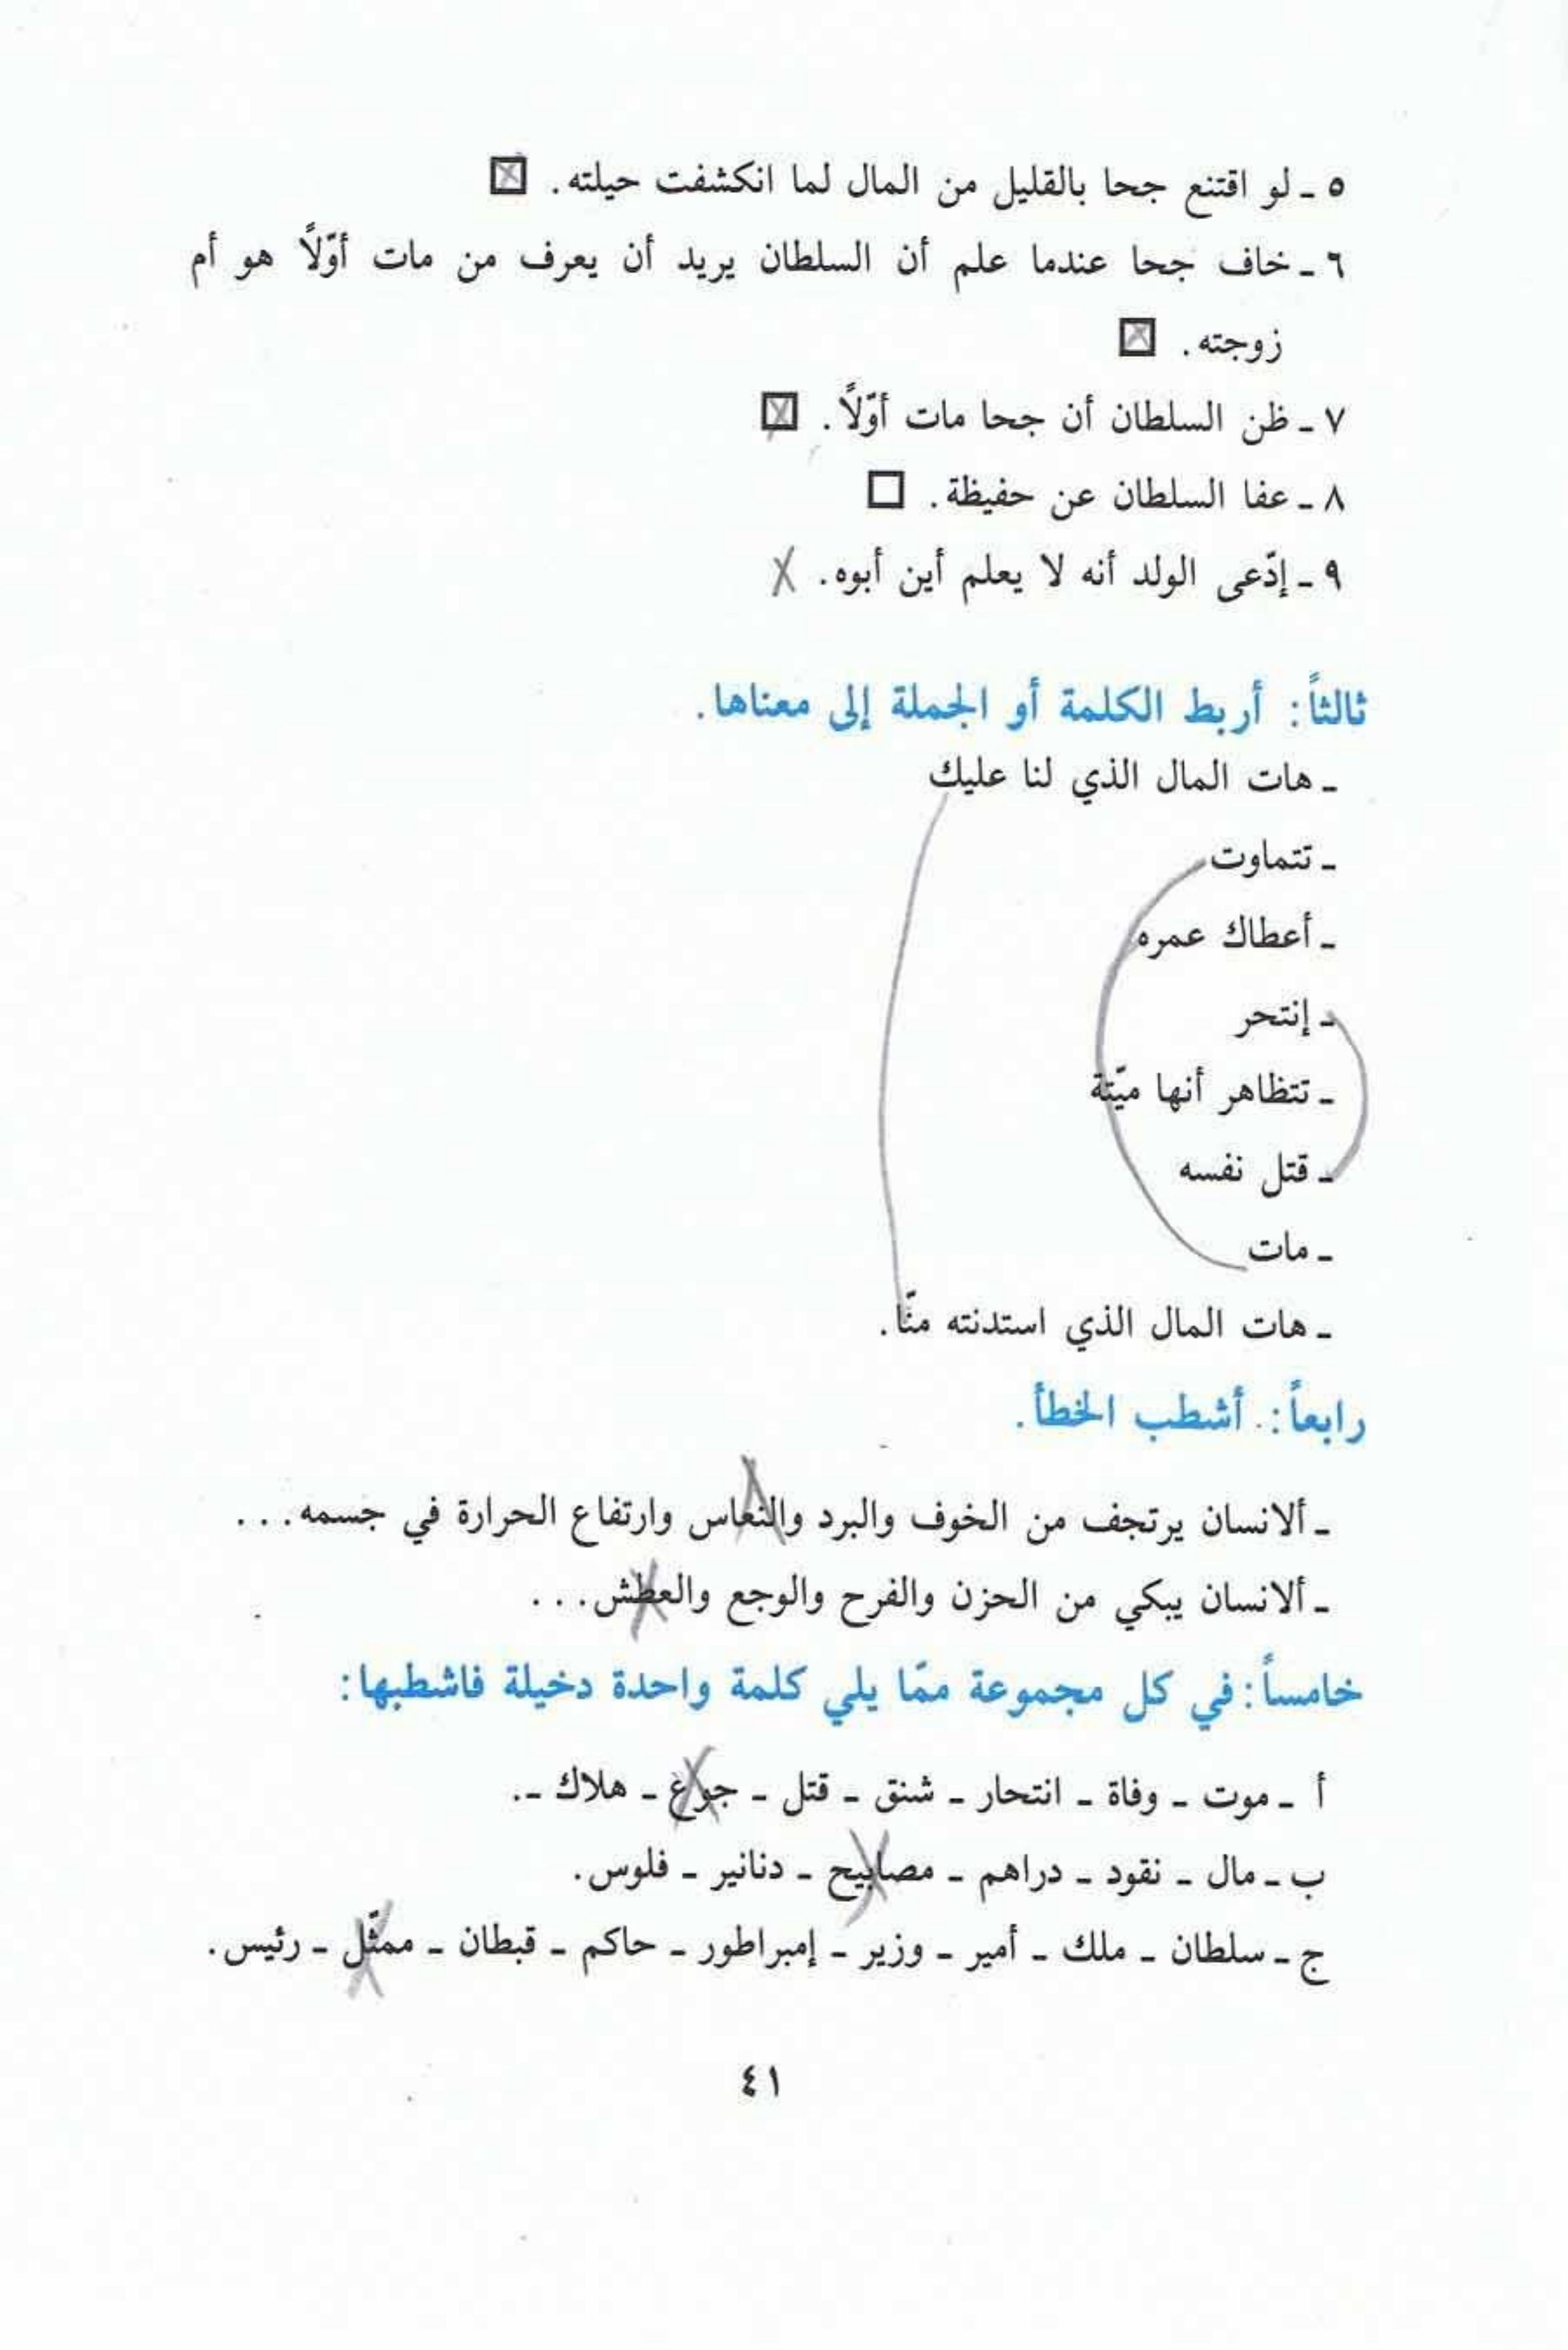 ٥ ـ لو اقتنع جحا بالقليل من المال لما انكشفت حيلته .
٦ ـ خاف جحا عندما علم أن السلطان يريد أن يعرف من مات أوّلاً هو أم
زوجته .
٧ ـ ظن السلطان أن جحا مات أوّلاً .
٨ ـ عفا السلطان عن حفيظة .
٩ ـ إدّعى الولد أنه لا يعلم أين أبوه .
ثالثاً : أربط الكلمة أو الجملة إلى معناها .
ـ هات المال الذي لنا عليك
ـ تتماوت
ـ أعطاك عمره
ـ إنتحر
ـ تتظاهر أنها ميّتة
ـ قتل نفسه
ـ مات
ـ هات المال الذي استدنته منّا .
رابعاً : أشطب الخطأ .
ـ ألانسان يرتجف من الخوف والبرد والنعاس وارتفاع الحرارة في جسمه ...
ـ ألانسان يبكي من الحزن والفرح والوجع والعطش ...
خامساً : في كل مجموعة ممّا يلي كلمة واحدة دخيلة فاشطبها :
أ ـ موت ـ وفاة ـ انتحار ـ شنق ـ قتل ـ جوع ـ هلاك ـ .
ب ـ مال ـ نقود ـ دراهم ـ مصابيح ـ دنانير ـ فلوس .
ج ـ سلطان ـ ملك ـ أمير ـ وزير ـ إمبراطور ـ حاكم ـ قبطان ـ ممثّل ـ رئيس .
٤١